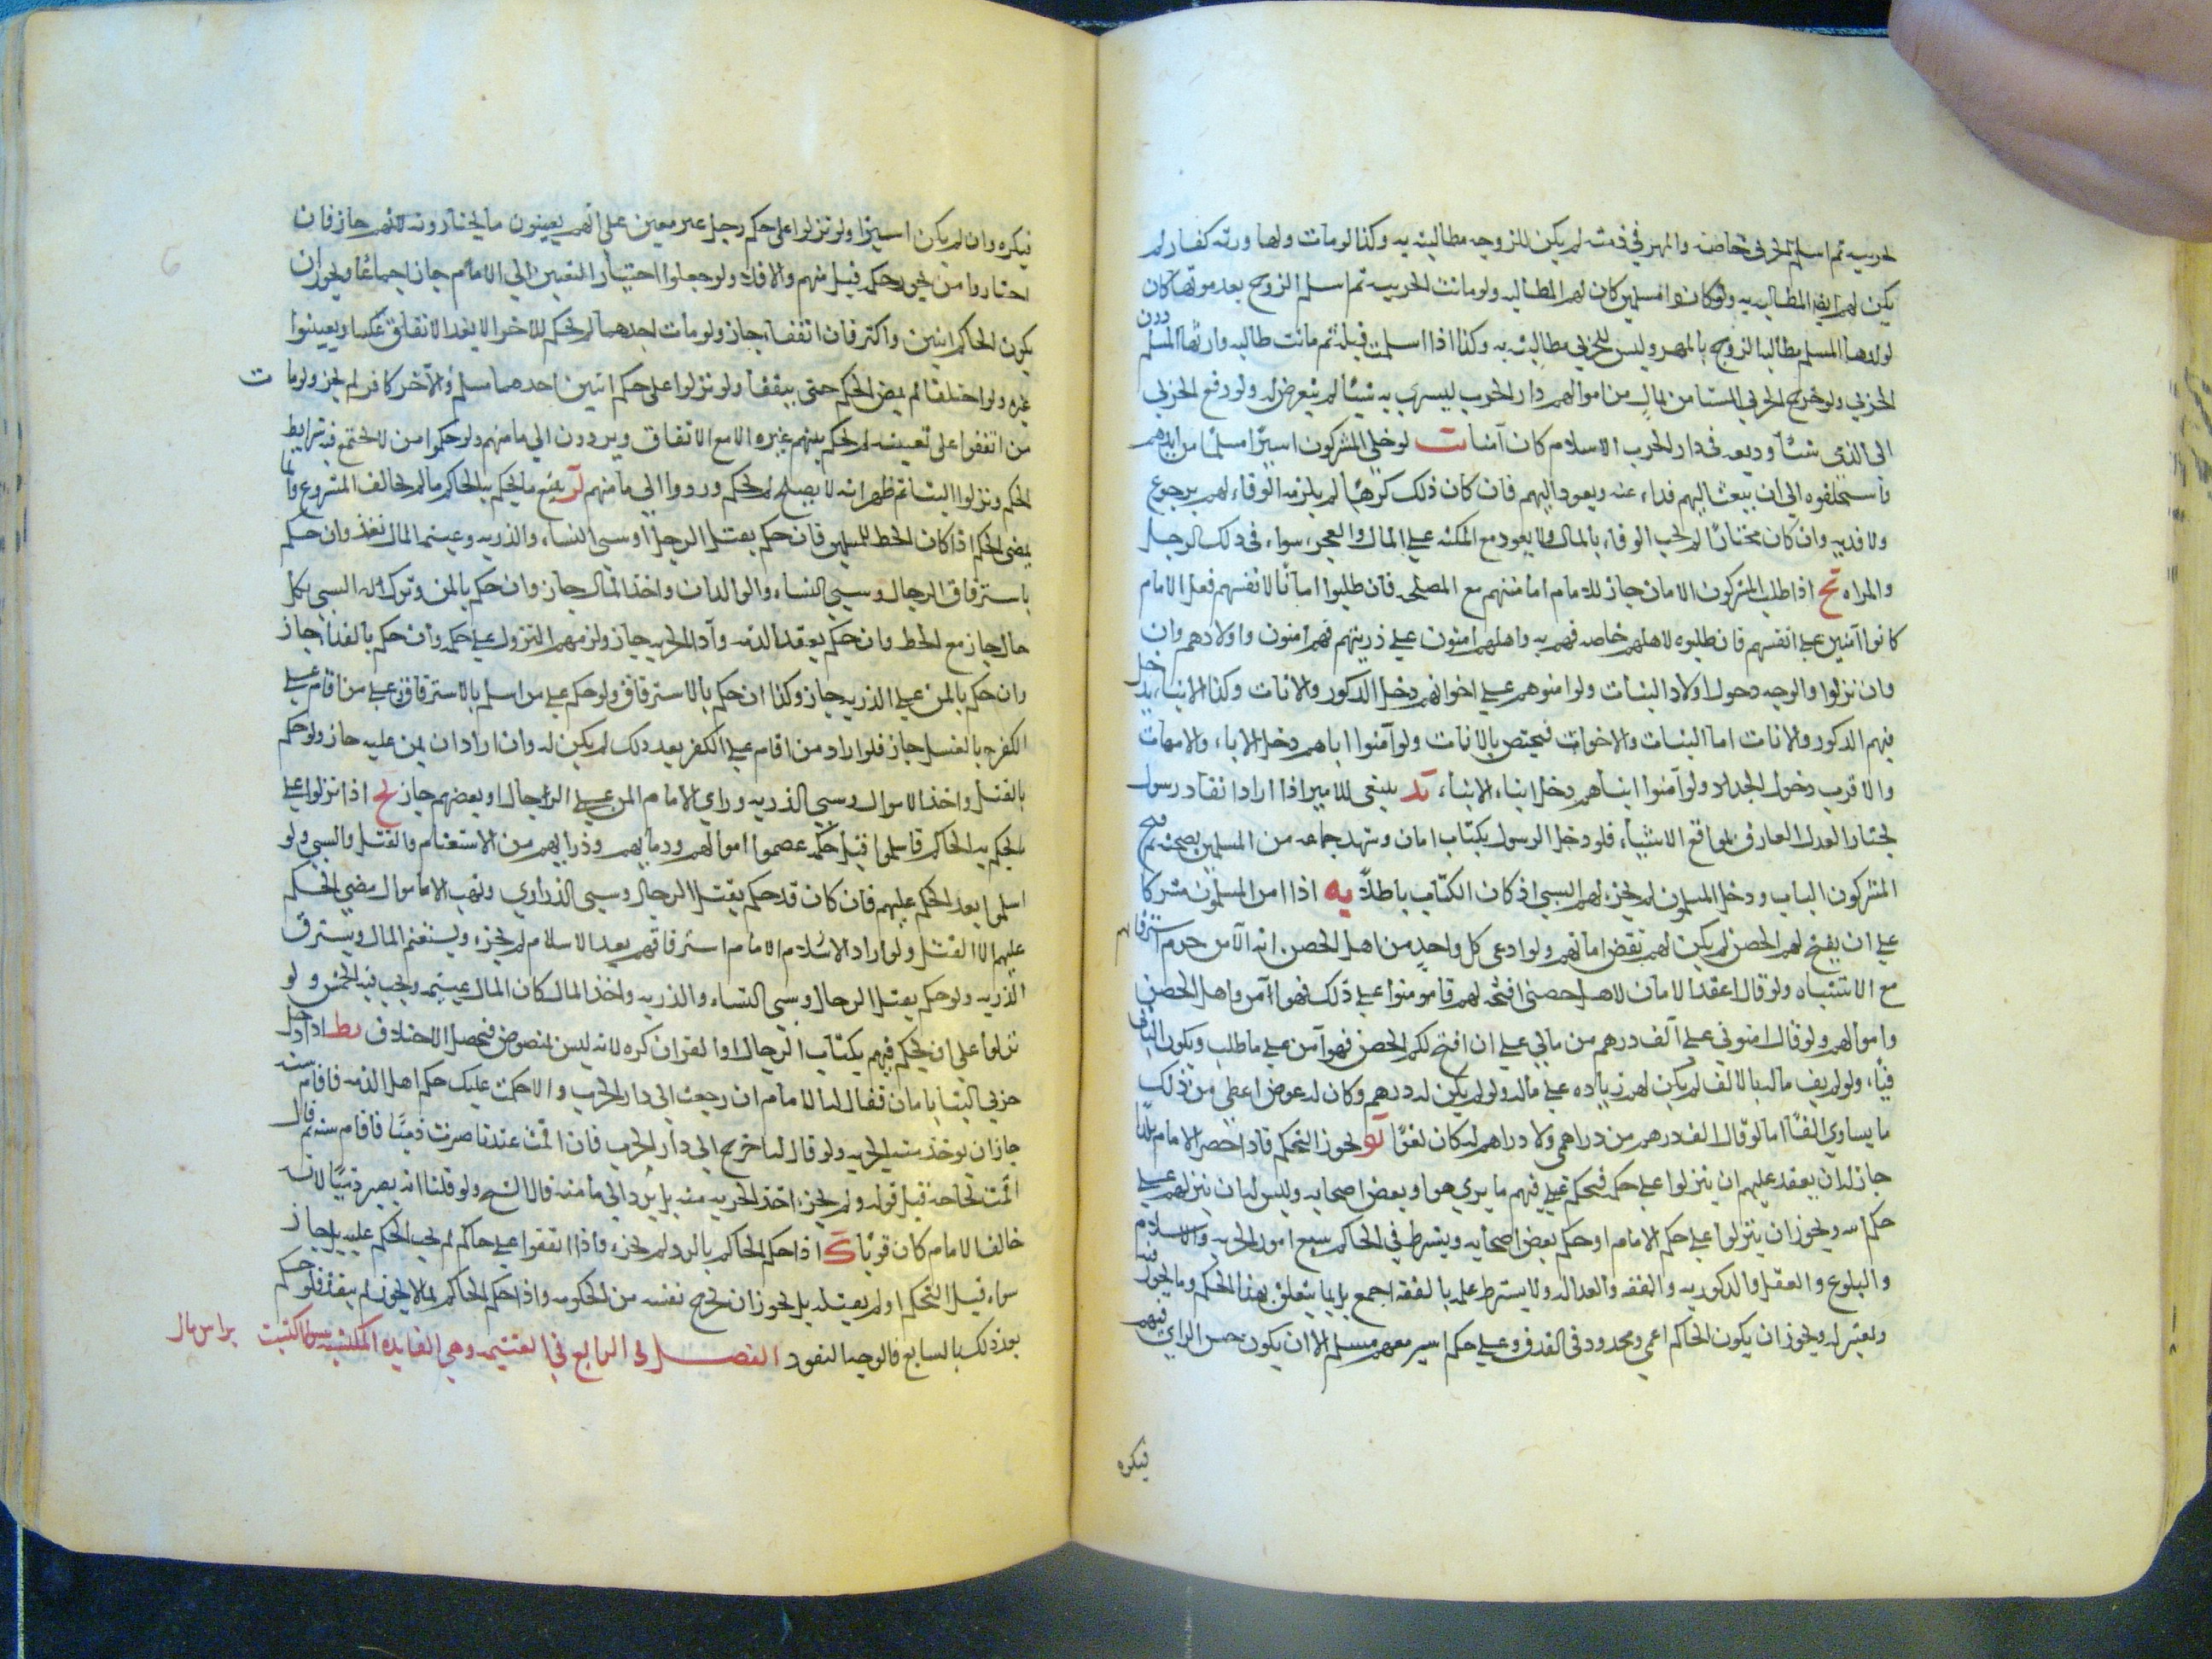 الحربيه ثم اسلم الحربى خاصه والمهر في ذمته لم يكن للزوجه مطالبته به وكذا لو مات ولها ورثه كفار لم
يكن لهم ايضا المطالبه به ولو كانوا مسلمين كان لهم المطالبه ولو ماتت الحربيه ثم اسلم الزوج بعد موتها كان
لولدها المسلم مطالبه الزوج بالمهر وليس للحربي مطالبته به وكذا اذا اسلمت قبله ثم ماتت طالبه وارثها المسلم دون
الحربي ولو خرج الحربي المستامن بمال من اموالهم دار الحرب ليشتري به شيئا لم يتعرض له ولو دفع الحربي
الى الذى شيئا وديعه فى دار الحرب الاسلام كان آمنا لو خلى المشركون اسيرا مسلما من ايديهم
واستحلفوه الى ان يبعث اليهم فداء عنه ويعود اليهم فان كان ذلك كرها لم يلزمه الوفاء لهم برجوع
ولا فديه وان كان مختارا لم يجب الوفاء بالمال ولا يعود مع المكنه على المال والعجز سواء فى ذلك الرجل
والمراه يح اذا طلب المشركون الامان جاز للامام امامنهم مع المصلحه فان طلبوا امانا لانفسهم فعل الامام
كانوا آمنين على انفسهم فان طلبوه لاهلهم خاصه فهم به واهلهم امنون على ذريتهم فهم امنون واولادهم وان
وان نزلوا والوجه دخول اولاد البنات ولو امنوهم على اخوانهم دخل الذكور والاناث وكذا الابناء يدخل
فيهم الذكور والاناث اما البنات والاخوات فيختص بالاناث ولو آمنوا اباهم دخل الاباء والامهات
والاقرب دخول الجداد ولو آمنوا ابناهم دخل ابناء الابناء يد ينبغى للامير اذا اراد انفاذ رسول
يختار العدل العارف بمواقع الاشياء فلو دخل الرسول بكتاب امان وشهد جماعه من المسلمين بصحته ثم فتح
المشركون الباب ودخل المسلمون لم يجز لهم السبى اذ كان الكتاب باطلا يه اذا امن المسلمون مشركا
على ان يفتح لهم الحصن لم يكن لهم نقض امانهم ولو ادعى كل واحد من اهل الحصن انه الآمن حرم استرقاقهم
مع الاشتباه ولو قال اعقد الامان لاهل حصنى افتحه لهم فامومنوا على ذلك فهو آمن واهل الحصن
واموالهم ولو قال امنوني على آلف درهم من مالي على ان افتح لكم الحصن فهو آمن على ما طلب ويكون الباقى
فيا ولو لم يف ماله بالالف لم يكن لهم زياده على ماله ولو لم يكن له درهم وكان له عروض اعطى من ذلك
ما يساوي الفا اما لو قال الف درهم من دراهمى ولا دراهم له كان لغوا يو يجوز التحكم فاذا حصر الامام بلدا
جاز له ان يعقد عليهم ان ينزلوا على حكمه فيحكم فيهم ما يري هو او بعض اصحابه وليس له ان ينزلهم على
حكم الله ويجوز ان ينزلوا على حكم الامام او حكم بعض اصحابه ويشترط في الحاكم سبع امور الحريه والاسلام
والبلوغ والعقل والذكوريه والفقه والعداله ولا يشترط علمه بالفقه اجمع بل بما يتعلق بهذا الحكم وما يجوز فيه
ويعتبر له ويجوز ان يكون الحاكم اعمى ومحدود فى القذف وعلى حكم اسير معهم مسلم الا ان يكون حسن الراي فيهم
فيكره
فيكره وان لم يكن اسيرا ولو نزلوا على حكم رجل غير معين على انهم يعينون ما يختارونه لانفسهم جاز فان
اختاروا من يجوز حكمه قبل منهم والا فلا ولو جعلوا اختيار التعيين الي الامام جاز اجماعا ويجوز ان
يكون الحاكم اثنين واكثر فان اتفقا جاز ولو مات احدهما لم يحكم الاخر الا بعد الاتفاق عليه او يعينوا
غيره ولو اختلفا لم يمض الحكم حتى يتفقا ولو نزلوا على حكم اثنين احدهما مسلم والآخر كافر لم يجز ولو مات
من اتفقوا على تعيينه لم يحكم بينهم غيره الا مع الاتفاق ويردون الى مامنهم ولو حكموا من لا تجتمع فيه شرايط
الحكم ونزلوا الينا ثم ظهر انه لا يصلح لم يحكم وردوا الى مامنهم يز يتبع ما يحكم به الحاكم ما لم يخالف المشروع وانما
يمضى الحكم اذا كان الحظ للمسلمين فان حكم بقتل الرجل او سبى النساء والذريه وغنيمه المال نفذ وان حكم
باسترقاق الرجال وسبى النساء والولدان واخذ المال جاز وان حكم بالمن وترك السبى بكل
حال جاز مع الحظ وان حكم بعقد الذمه واداء الجزيه جاز ولزمهم النزول على حكمه وان حكم بالفداء جاز
وان حكم بالمن على الذريه جاز وكذا ان حكم بالاسترقاق ولو حكم على من اسلم بالاسترقاق وعلى من اقام على
الكفر بالقتل جاز فلو اراد من اقام على الكفر بعد ذلك لم يكن له وان اراد ان يمن عليه جاز ولو حكم
بالقتل واخذ الاموال وسبى الذريه وراى الامام المن على الرجال او بعضهم جاز يح اذا نزلوا على
ما يحكم به الحاكم فاسلموا قبل حكمه عصموا اموالهم ودمايهم وذراريهم من الاستغنام والقتل والسبى ولو
اسلموا بعد الحكم عليهم فان كان قد حكم بقتل الرجال وسبى الذراري ونهب الاموال مضى الحكم
عليهم الا القتل ولو اراد الامام استرقاقهم بعد الاسلام لم يجز ويستغنم المال ويسترق
الذريه ولو حكم بقتل الرجال وسبى النساء والذريه واخذ المال كان المال غنيمه ويجب فيه الخمس ولو
نزلوا على ان يحكم فيهم بكتاب الرجال او القران كره لانه ليس بمنصوص فيحصل الاختلاف يط اذا دخل
حزبى الينا بامان فقال له الامام ان رجعت الى دار الحرب والا حكمت عليك حكم اهل الذمه فاقام سنه
جاز ان يوخذ منه الجزيه ولو قال له اخرج الى دار الحرب فان اقمت عندنا صرت ذميا فاقام سنه ثم قال
اقمت لحاجه قبل قوله ولم يجز اخذ الجزيه منه بل يرد الى مامنه قال الشيخ ولو قلنا انه يصير ذميا لانه
خالف الامام كان قويا ك اذا حكم الحاكم بالرد لم يجز واذا اتفقوا على حاكم لم يجب الحكم عليه بل جاز
سواء قبل التحكم او لم يقبله بل يجوز ان يخرج نفسه من الحكومه واذا حكم الحاكم بما لا يجوز لم ينفذ فلو حكم
بعد ذلك بالسايغ فالوجه النفوذ الفصل الرابع في الغنيمه وهى الفايده المكتسبه سواء اكتسبت براس مال